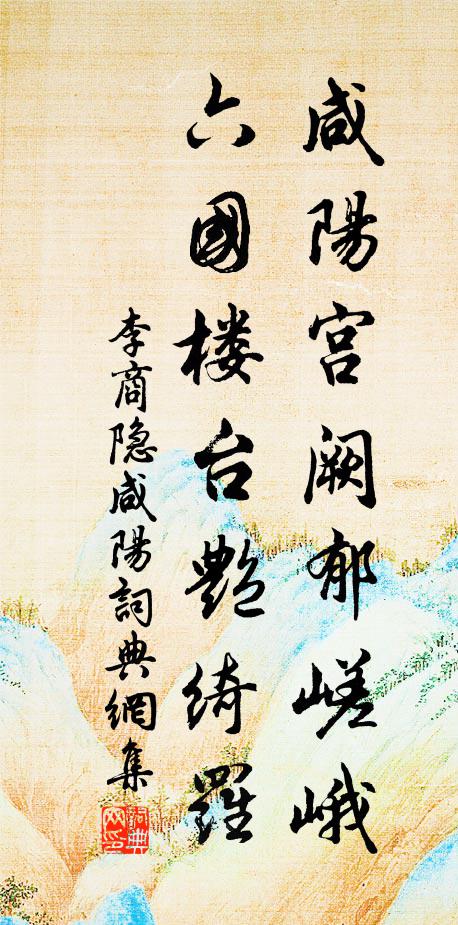 咸陽宫阙郁嵯峨
六國楼台艷绮羅
李商隐咸陽詞典網集